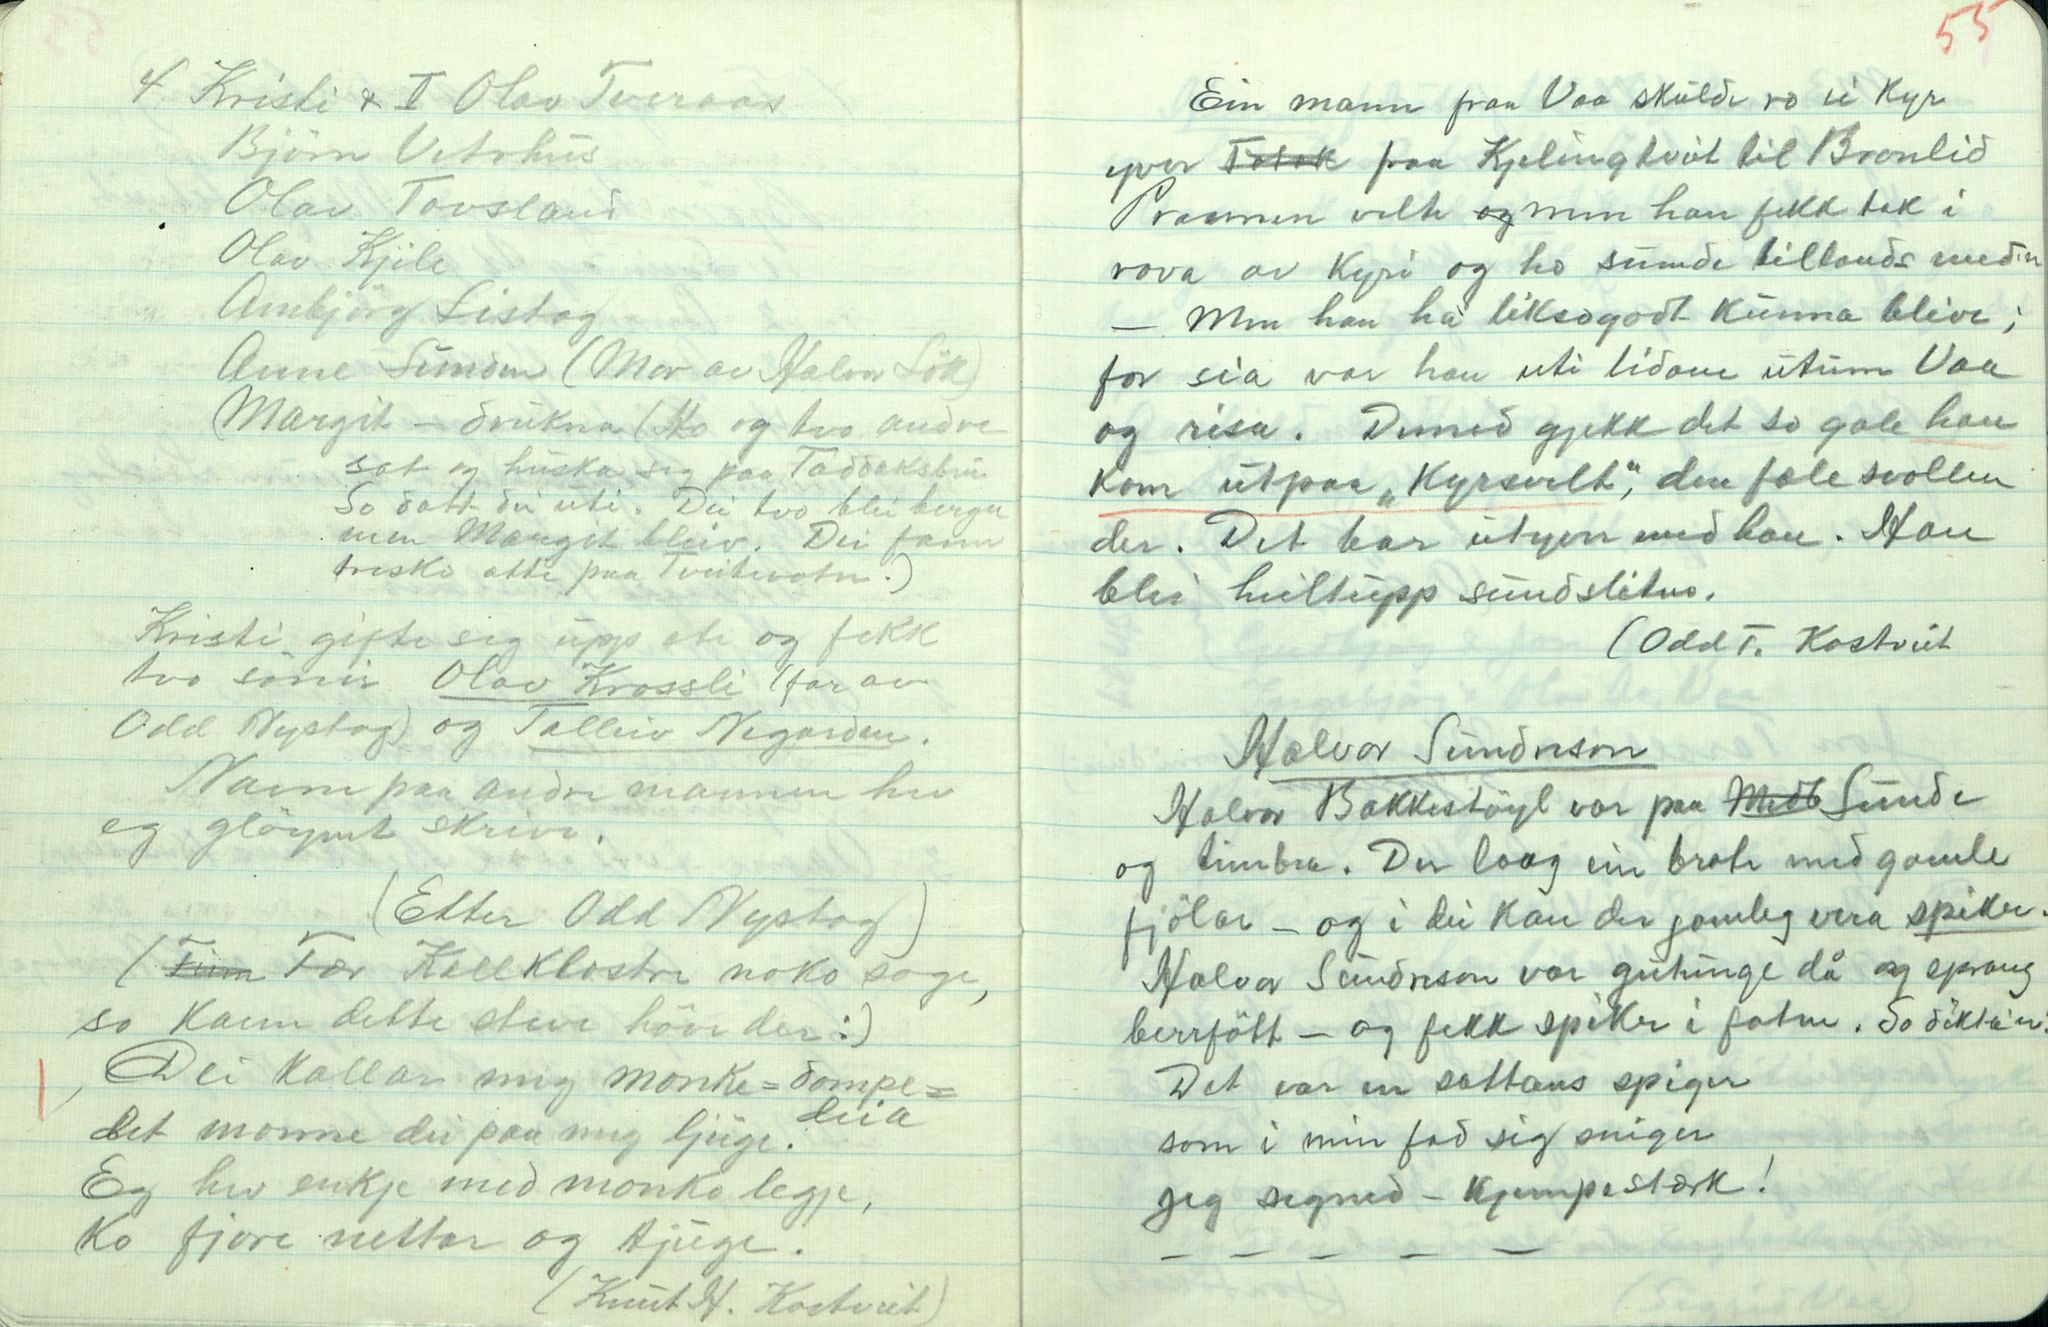 4 Kristi & I Olav Tveraas
Björn Vetrhus
Olav Tovsland
Olav Kjile
Ambjörg Listog
Anne Sunden (Mor av Halvor Lök)
Margit – drukna (Ho og tvo andre
sat og huska seg paa Toddøksbru
So datt dei uti. Dei tvo blei berga
men Margit bleiv. Dei fann
tresko atte paa Tveitevatn.)
Kristi gifte seg upp ate og fekk
tvo sönir Olav Krossli (far av
Odd Nystog) og Talleiv Negarden.
Namn paa andre mannen hev
eg glöymt skrive.
(Etter Odd Nystog)
(Fær Kallklostre noko soge,
so kann dette steve höve der:)
Dei kallar meg monke-dompe-
deia
det monne dei paa meg ljuge.
Eg hev enkje med monko legje,
ko fjore nettar og tjuge.
(Knut H. Kostveit)
55
Ein mann fraa Vaa skulde ro ei kyr
yver Totak fraa Kjelingtveit til Bronlid
Prammen velte og men han fekk tak i
rova av kyri og ho sumde tillands med'n
– Men han há liksogodt kunna blive;
for sia var han uti lidane utum Vaa
og risa. Dermed gjekk det so gale han
kom utpaa „Kyrsvelt", den fæle svollen
der. Det bar utyver med han. Han
blei heiltupp sundsliten.
(Odd T. Kostveit
Halvor Sundreson
Halvor Bakkestöyl var paa Midb Sunde
og timbra. Der laag ein brote med gamle
fjölar – og i dei kan der jamleg vera spiker.
Halvor Sundreson var gutunge då og sprang
berrfött – og fekk spiker i foten. So dikta'n:
Det var en sattans spiger
som i min fod sig sniger
jeg segned – kjempestærk!
– – – – –